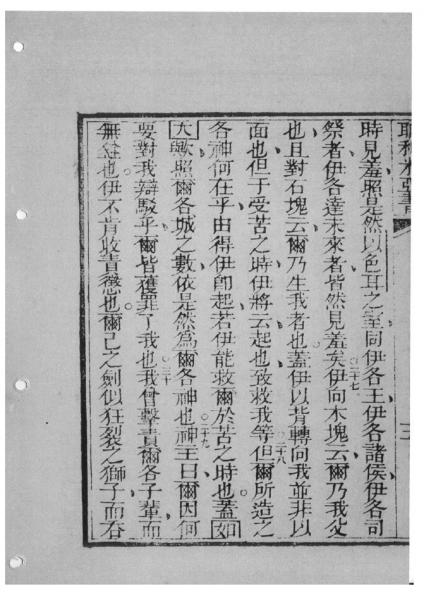 耶利米亞書
時見羞照是然以色耳之室同伊各王伊各諸侯伊各司
祭者伊各達未來者皆然見羞矣二十七伊向木塊云爾乃我父
也且對石塊云爾乃生我者也蓋伊以背轉向我並非以
面也但于受苦之時伊將云起也致救我等二十八但爾所造之
各神何在乎由得伊卽起若伊能救爾於苦之時也蓋如
大歟照爾各城之數依是然為爾各神也二十九神主曰爾因何
要對我辯駁乎爾皆獲罪了我也三十我曾擊責爾各子輩而
無益也伊不肯收責懲也爾己之劍似狂裂之獅子而吞